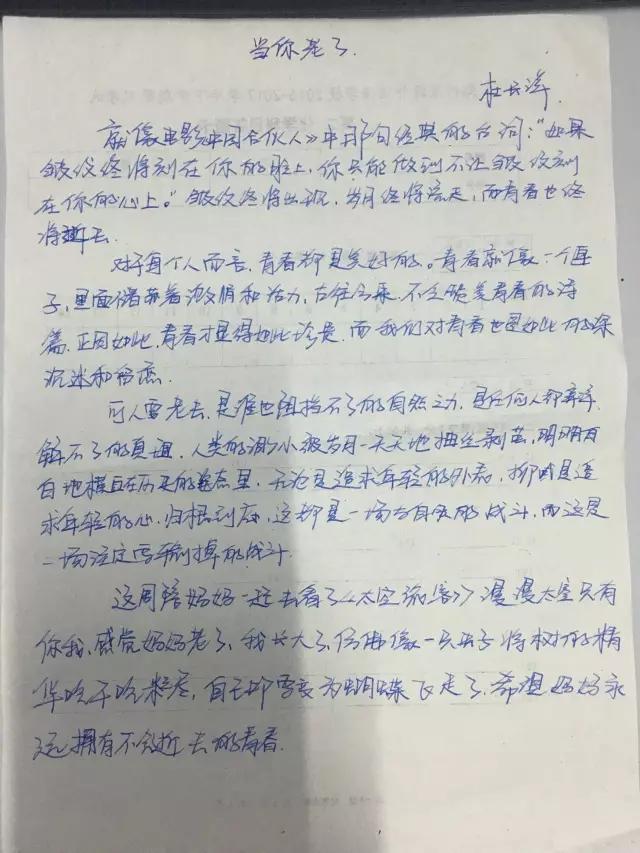 当你老了
杜长洋
就像电影中国合伙人》中那句经典的台词:"如果
皱纹终将刻在你的脸上,你只能做到不让皱纹刻
在你的心上。"皱纹终将出现,岁月终将流走,而青春也终
将逝去.
对于每个人而言,青春都是美好的。青春就像一个匣
子,里面储藏着激情和活力,古往今来,不乏赞美青春的诗
篇,正因如此,青春才显得如此珍贵,而我们对青春也是如此的深
沉迷和留恋.
可人要老去,是谁也阻挡不了的自然之力,是任何人都弄
解不了的真理,人类的渺小被岁月一天天地抽丝剥茧,明明白
白地摆在历史的卷态里,无论是追求年轻的外表,抑或是追
求年轻的心,归根到底,这都是一场与自我的战斗,而这是
一场注定要输掉的战斗.
这周陪妈妈一起去看了《太空旅客》漫漫太空只有
你我,感觉妈妈老了,我长大了,仿佛像一只虫子将树的精
华吃干吃粹尽,自己却要变为蝴蝶飞走了,希望妈妈永
远拥有不会逝去的青春.